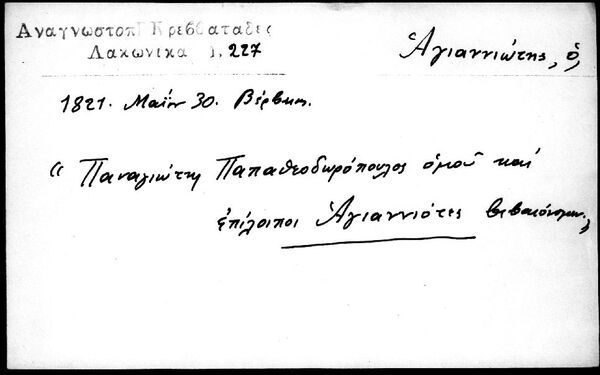 Αναγνωστοπ Κρεββαταδες
Λακωνικα 1, 227
Ἁγιαννιώτης, ὁ,
1821. Μαΐου 30. Βέρβενα.
“ Παναγιώτης Παπαθεοδωρόπουλος ὁμοῦ καὶ
ἐπίλοιποι Ἁγιαννιότες βεβαιόνομεν „